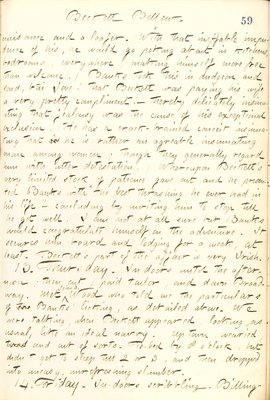 Boweryem Bellew.
59
nuisance and a loafer. With that ineffable impu-
dence of his, he would go poking about in kitchens,
bedrooms, everywhere, making himself more free
than welcome. Banks took this in dudgeon and
said,
a very pretty compliment — thereby delicately insinu-
ating that jealousy was the cause of his exceptional
exclusion! He has a crack-brained conceit insinua-
ting that he is rather an agreeable insinuating
man among women; though they generally regard
him with detestation. Whereupon
very limited stock of patience gave out and he prom-
ised Banks with the best thrashing he ever had in
his life — concluding by inviting him to stop till
he got well. I am not at all sure but Banks
would congratulate himself on the adventure. It
secures him board and lodging for a week, at
least. part of the affair is very Irish.
13. Thursday. In doors until the after-
noon; then out, paid tailor, and down Broad-
way. Met Wood who told me the particulars
of Banks' licking, as detailed above. We
were talking, when appeared looking as
usual, like an ideal navvy. Up town. Wearied
and out of sorts. To bed by 8 o'clock, but
didn't get to sleep till 2 or 3, and then dropped
into uneasy, unrefreshing slumber.
14. Friday. In-doors scribbling. Billing-